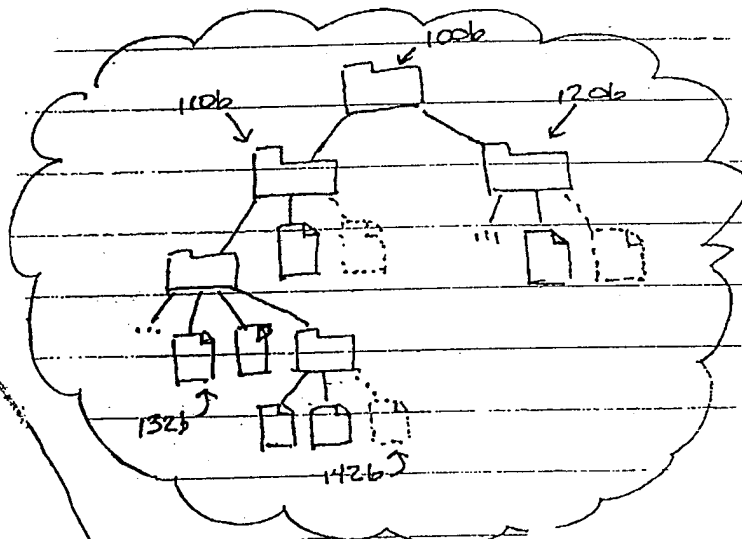 100b
110b
120b
...
...
132b
142b